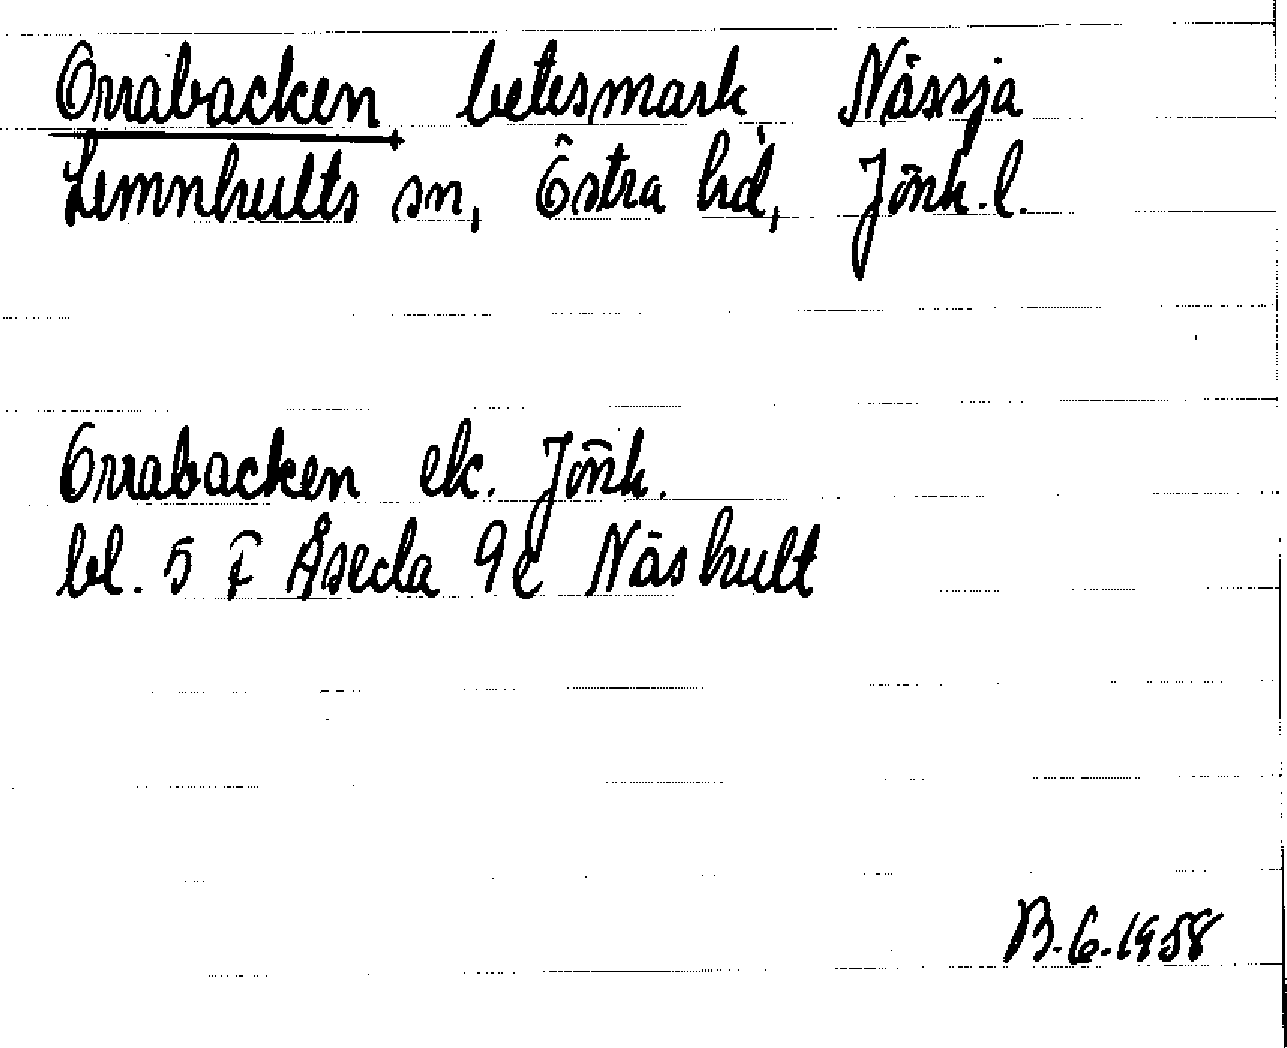 Orrabacken, betesmark, Nässja
Lemnhults sn, Östra hd, Jönk. l.
Orrabacken ek. Jönk.
bl. 5 F Åseda 9 c Näshult
B. G. 1958